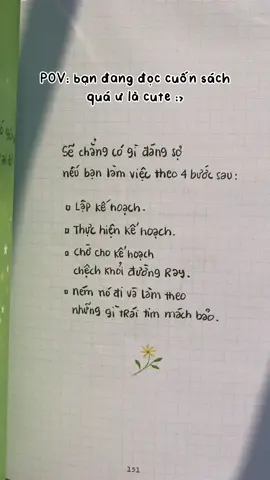 POV: bạn đang đọc cuốn sách
quá ư là cute :>
Sẽ chẳng có gì đáng sợ
nếu bạn làm việc theo 4 bước sau:
Lập kế hoạch.
Thực hiện kế hoạch.
Chờ cho kế hoạch
chệch khỏi đường Ray.
ném nó đi và làm theo
những gì tRái tim mách bảo.
151